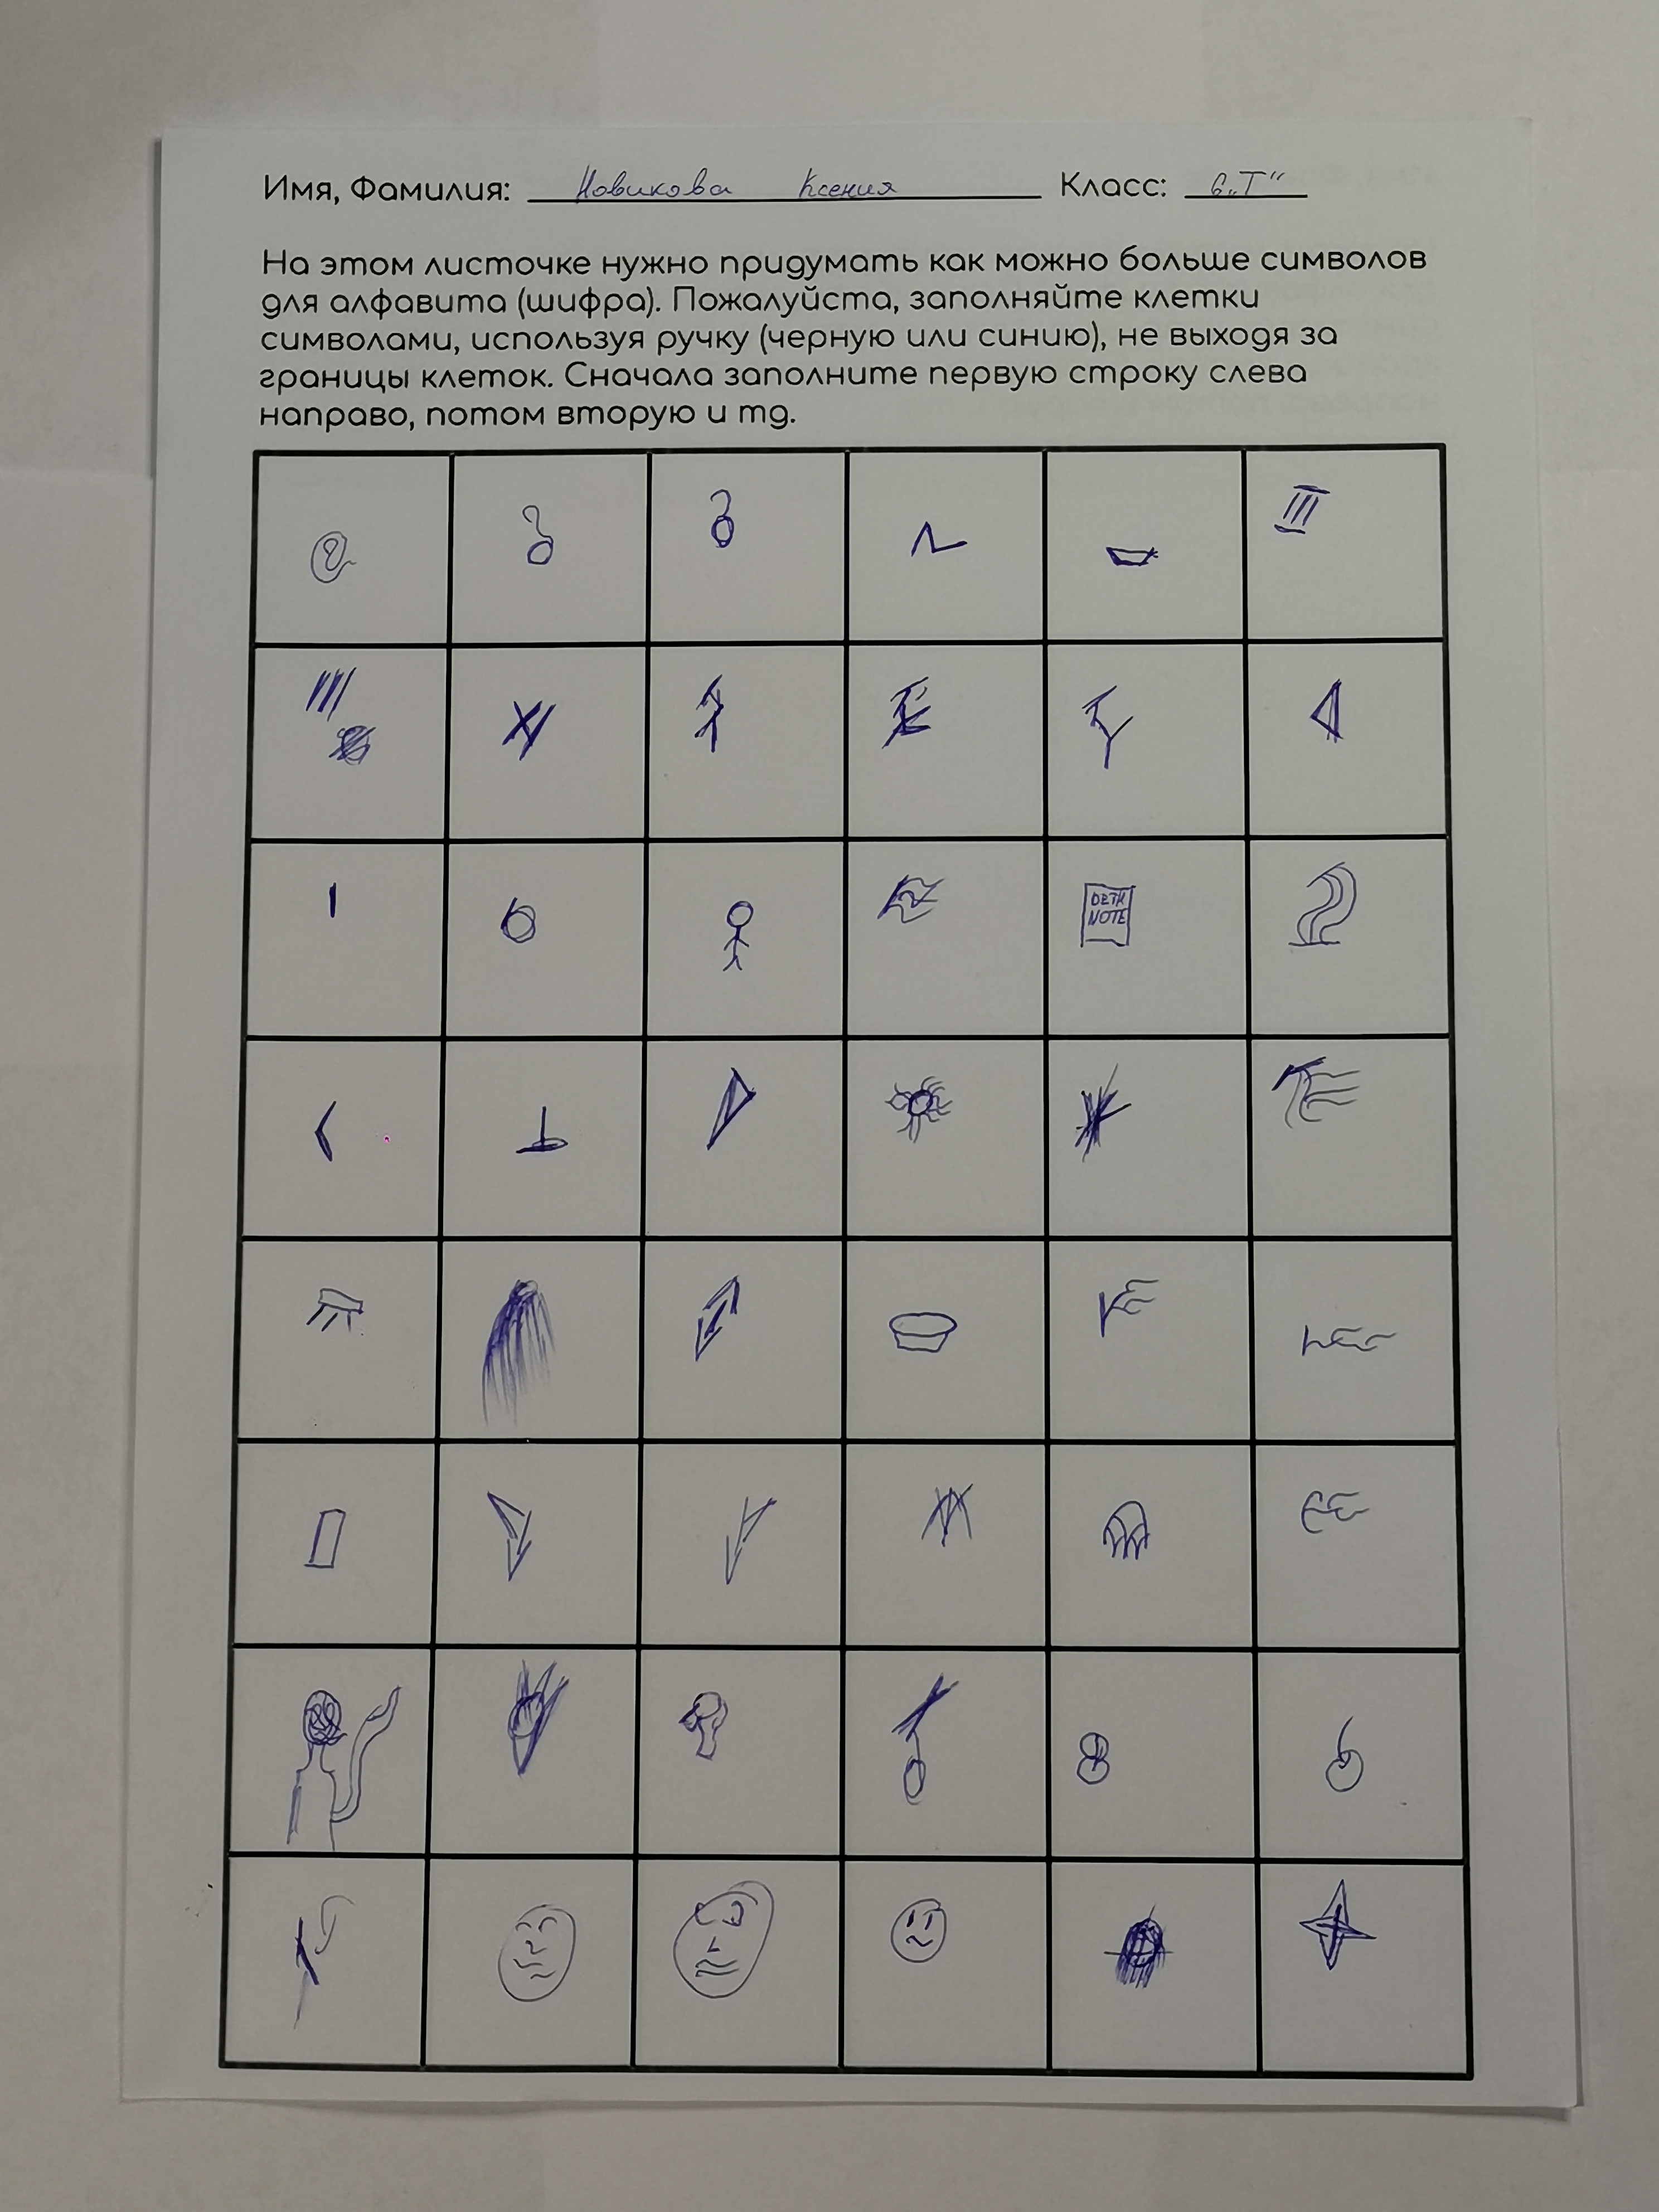 Имя, Фамилия: Новикова Ксения Класс: 6 „Т"
На этом листочке нужно придумать как можно больше символов
для алфавита (шифра). Пожалуйста, заполняйте клетки
символами, используя ручку (черную или синию), не выходя за
границы клеток. Сначала заполните первую строку слева
направо, потом вторую и тд.
DETH
NOTE